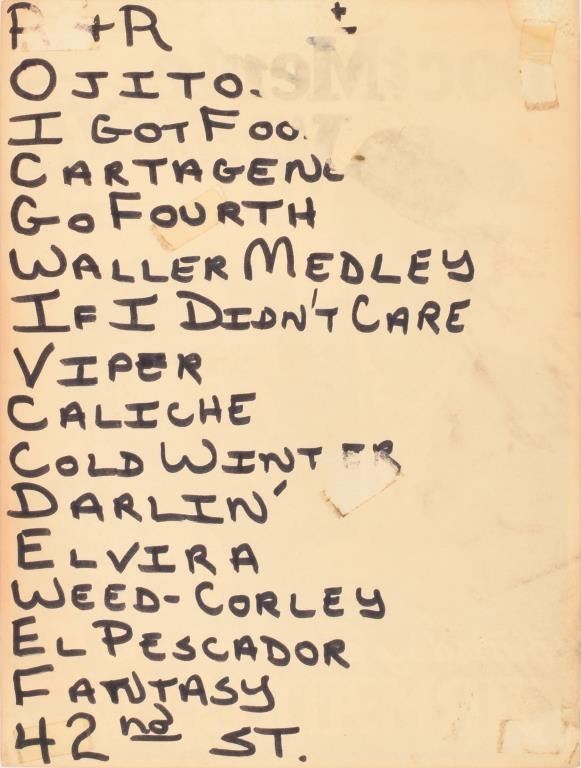 R+R
OJITO.
I GOT FOO
CARTAGEN
GO FOURTH
WALLER MEDLEY
IF I DIDN'T CARE
VIPER
CALICHE
COLD WINTER
DARLIN'
ELVIRA
WEED-CORLEY
EL PESCADOR
FANTASY
42nd ST.